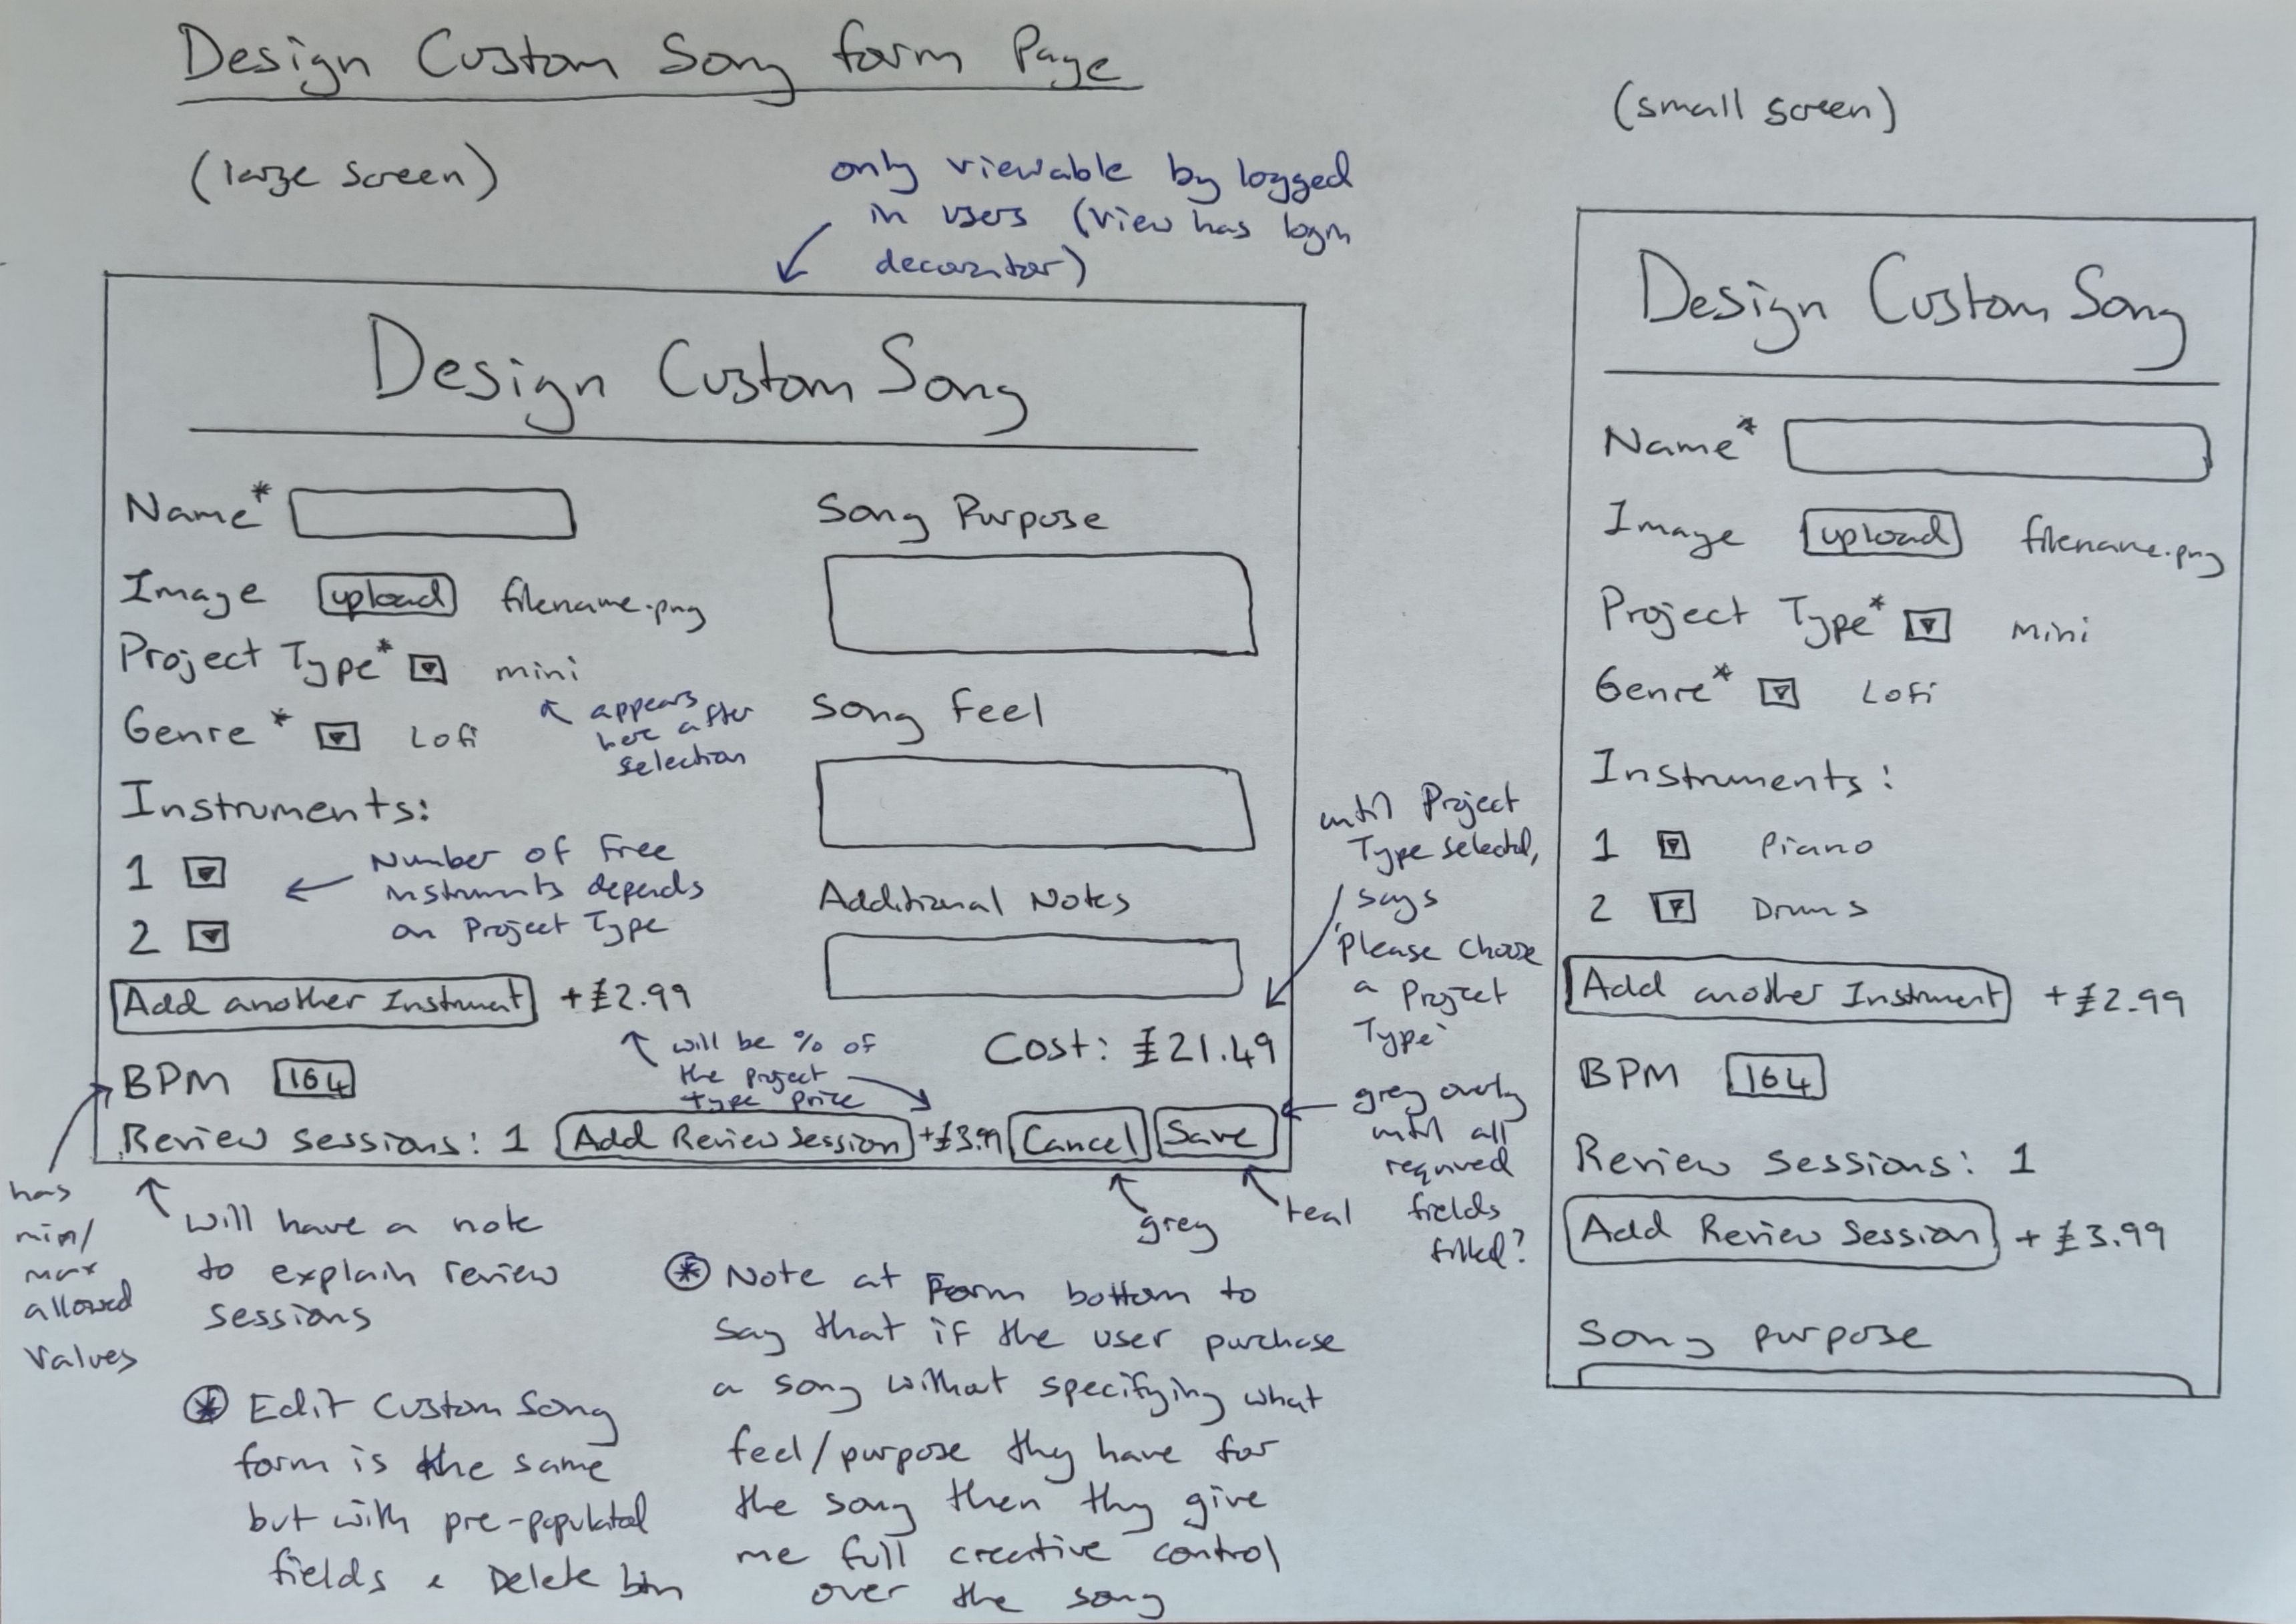 Design Custom Song form Page
(large screen)
only viewable by logged
in users (view has login
decorator)
Design Custom Song
Name*
Image upload filename.png
Project Type* mini
appears
here after
selection
Genre* Lofi
Instruments:
1
2
Number of free
instruments depends
on Project Type
Add another Instrument +£2.99
will be % of
the project
type price
BPM 164
Review sessions: 1 Add Review Session +£3.99
Song Purpose
Song Feel
Additional Notes
Cost: £21.49
Cancel Save
until Project
Type selected,
says
'please choose
a Project
Type'
grey overlay
until all
required
fields
filled?
grey
teal
has
min/
max
allowed
values
will have a note
to explain review
sessions
* Edit Custom Song
form is the same
but with pre-populated
fields & Delete btn
* Note at Form bottom to
say that if the user purchase
a song without specifying what
feel/purpose they have for
the song then they give
me full creative control
over the song
(small screen)
Design Custom Song
Name*
Image upload filename.png
Project Type* mini
Genre* Lofi
Instruments:
1 Piano
2 Drums
Add another Instrument +£2.99
BPM 164
Review sessions: 1
Add Review Session +£3.99
Song purpose